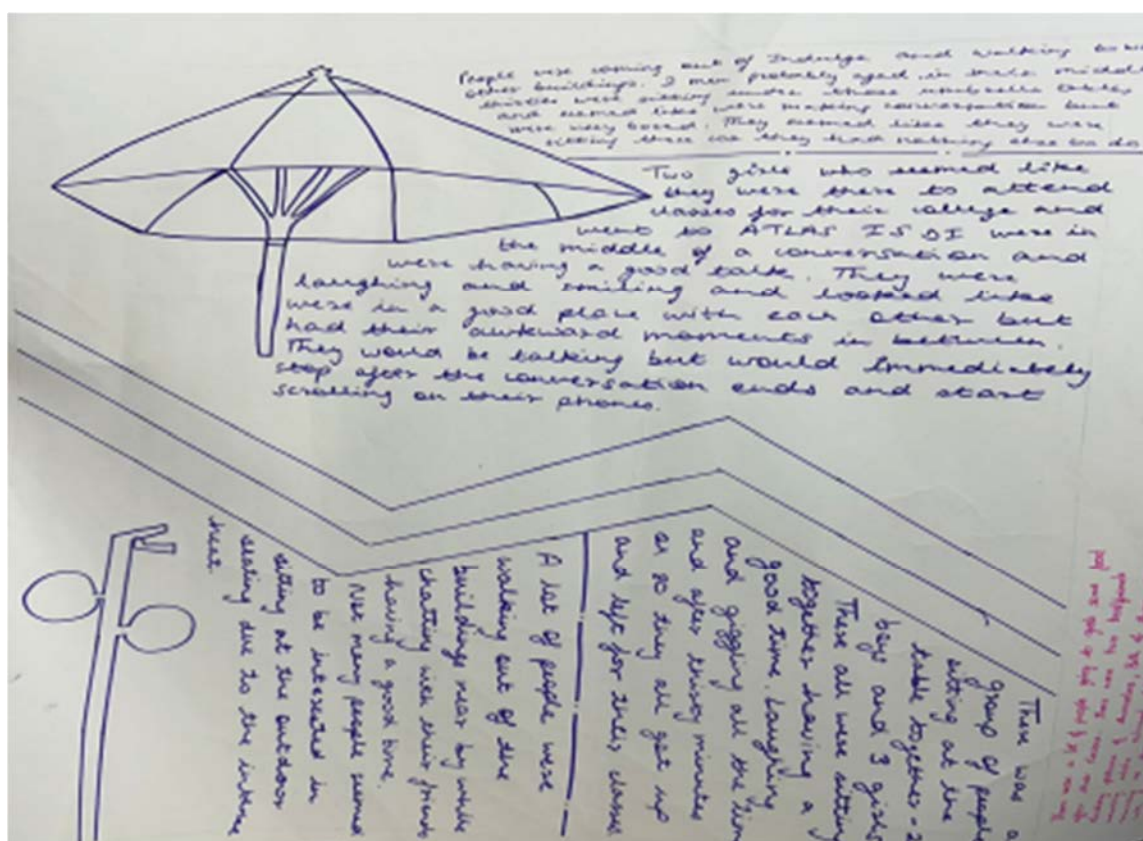 People were coming out of Indulge and walking
other buildings. 2 men probably aged in their middle
thirties were sitting under those umbrella tables
and seemed like were making conversation but
were very bored. They seemed like they were
sitting there coz they had nothing else to do
Two girls who seemed like
they were there to attend
classes for their college and
went to ATLAS ISDI were in
the middle of a conversation and
were having a good talk. They were
laughing and smiling and looked like
were in a good place with each other but
had their awkward moments in between.
They would be talking but would immediately
stop after the conversation ends and start
scrolling on their phones.
There was a
group of people
sitting at the
table together - 2
boys and 3 girls
These all were sitting
together having a
good time. Laughing
and giggling all the time
and after thirty minutes
or so they all got up
and left for their classes
A lot of people were
walking out of the
buildings near by while
chatting with their friends
having a good time.
Not many people seemed
to be interested in
sitting at the outdoor
seating due to the intense
heat.